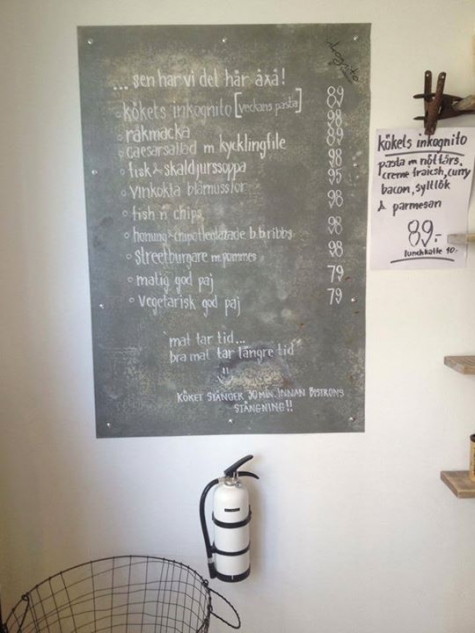 ... sen har vi det här åxå!
kökets inkognito [veckans pasta] 89
räkmacka 98
caesarsallad m kycklingfile 89
fisk & skaldjurssoppa 98
vinkokta blåmusslor 95
fish n chips 98
honung & chipotleglazade b.b ribbs 98
streetburgare m pommes 98
matig god paj 79
vegetarisk god paj 79
mat tar tid...
bra mat tar längre tid
KÖKET STÄNGER 30 MIN. INNAN BISTRONS
STÄNGNING!!
kökets inkognito
pasta m nötfärs,
creme fraiche, curry
bacon, syltlök
& parmesan
89.-
lunchkaffe 10.-